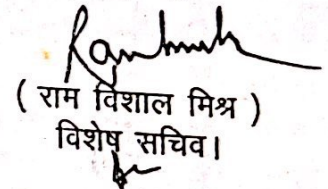 ( राम विशाल मिश्र )
विशेष सचिव।